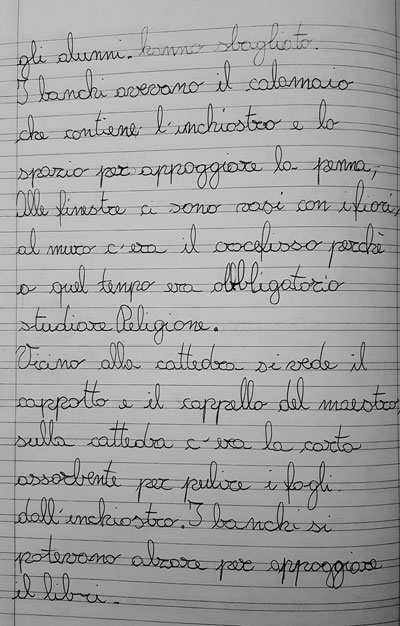 gli alunni. hanno sbagliato.
I banchi avevano il calamaio
che contiene l'inchiostro e lo
spazio per appoggiare la penna,
Alle finestre ci sono vasi con i fiori,
al muro c'era il crocefisso perchè
a quel tempo era obbligatorio
studiare Religione.
Vicino alla cattedra si vede il
cappotto e il cappello del maestro,
sulla cattedra c'era la carta
assorbente per pulire i fogli
dall'inchiostro. I banchi si
potevano alzare per appoggiare
il libri.